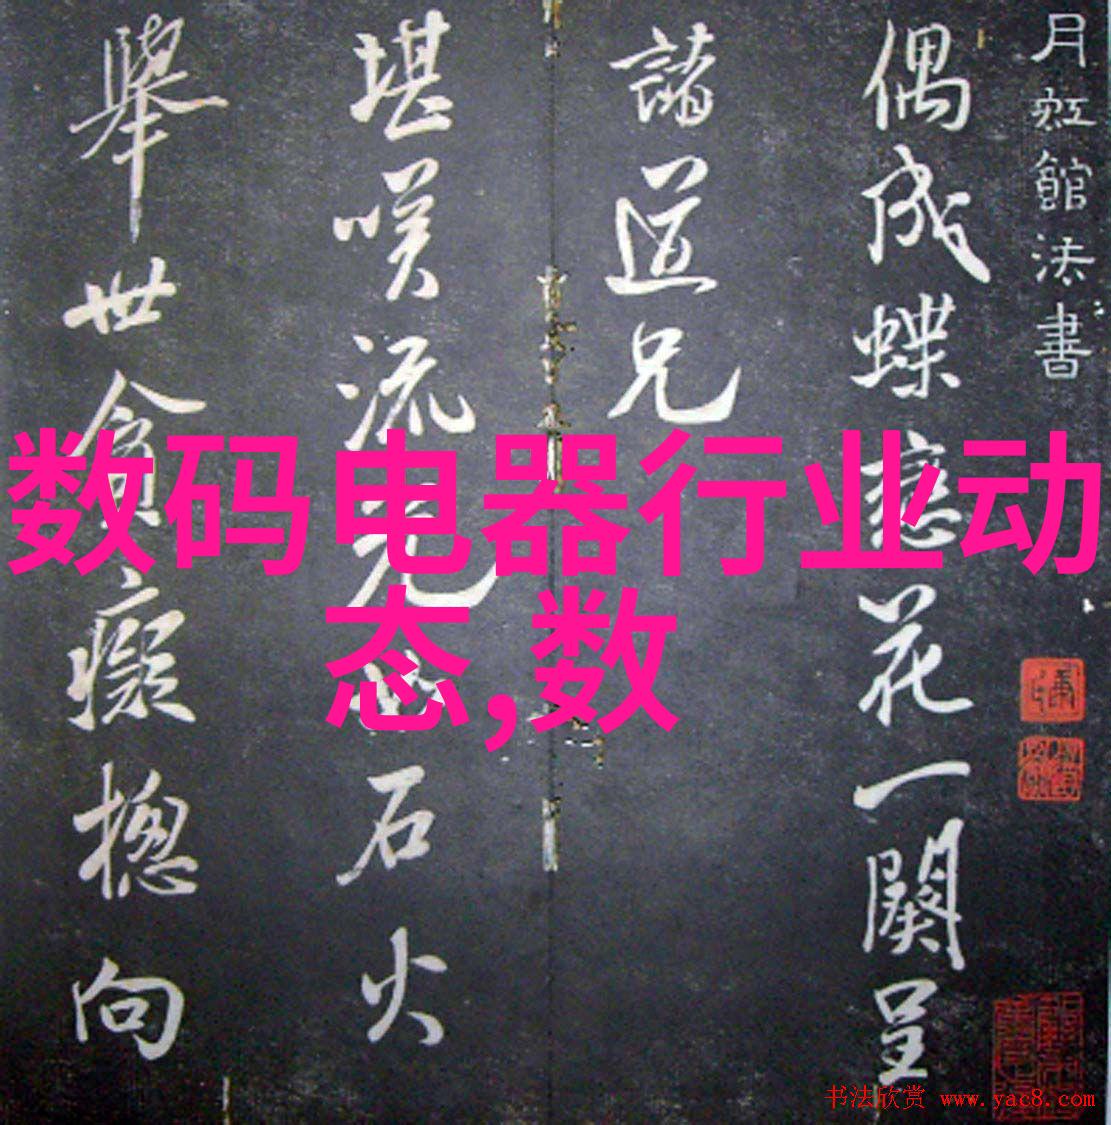 月虹館法書
偶成蝶戀花一闋呈
諸道兄
堪嘆流光如石火
舉世貪癡揔向
数码电器行业动
态,数
书法欣赏 www.yac8.com